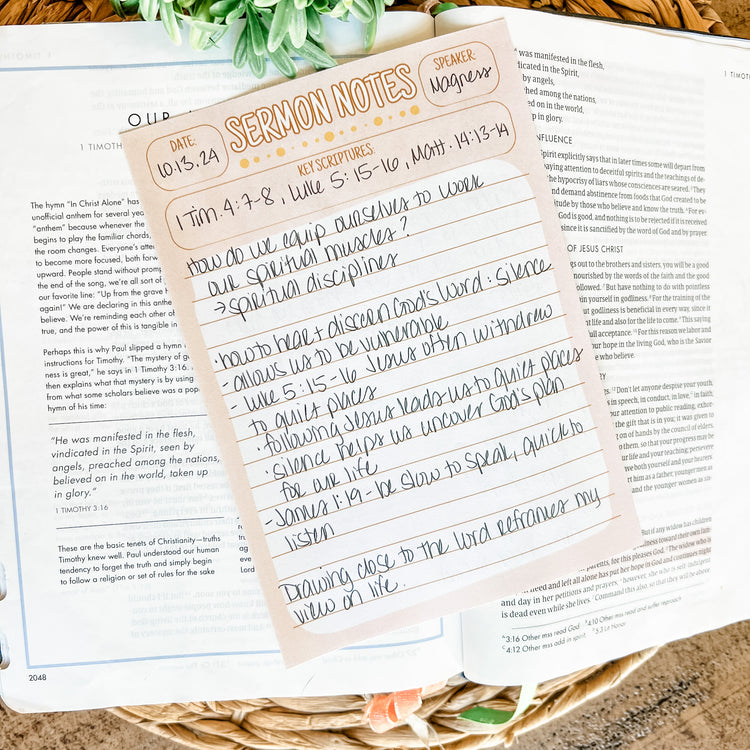 SERMON NOTES
DATE:
10.13.24
SPEAKER:
Magness
KEY SCRIPTURES:
1 Tim. 4:7-8, Luke 5:15-16, Matt. 14:13-14
How do we equip ourselves to work
our spiritual muscles?
→ spiritual disciplines
· how to hear + discern God's Word: silence
- allows us to be vulnerable
- Luke 5:15-16 Jesus often withdrew
to quiet places
· following Jesus leads us to quiet places
· silence helps us uncover God's plan
for our life
- James 1:19 - be slow to speak, quick to
listen
Drawing close to the Lord reframes my
view on life.
OUR
1 TIMOTHY
The hymn "In Christ Alone" has
unofficial anthem for several yea
"anthem" because whenever the
begins to play the familiar chords,
the room changes. Everyone's atte
to become more focused, both forw
upward. People stand without promp
the end of the song, we're all sort of
our favorite line: "Up from the grave H
again!" We are declaring in this anthe
believe. We're reminding each other of
true, and the power of this is tangible in
Perhaps this is why Paul slipped a hymn
instructions for Timothy. "The mystery of g
ness is great," he says in 1 Timothy 3:16.
then explains what that mystery is by using
from what some scholars believe was a pop
hymn of his time:
"He was manifested in the flesh,
vindicated in the Spirit, seen by
angels, preached among the nations,
believed on in the world, taken up
in glory."
1 TIMOTHY 3:16
These are the basic tenets of Christianity—truths
Timothy knew well. Paul understood our human
tendency to forget the truth and simply begin
to follow a religion or set of rules for the sake
2048
1 TIMOT
was manifested in the flesh,
dicated in the Spirit,
by angels,
ched among the nations,
ed on in the world,
p in glory.
NFLUENCE
Spirit explicitly says that in later times some will depart from
paying attention to deceitful spirits and the teachings of de-
the hypocrisy of liars whose consciences are seared. ³They
nd demand abstinence from foods that God created to be
titude by those who believe and know the truth. ⁴For ev-
God is good, and nothing is to be rejected if it is received
since it is sanctified by the word of God and by prayer.
OF JESUS CHRIST
gs out to the brothers and sisters, you will be a good
nourished by the words of the faith and the good
ollowed. ⁷But have nothing to do with pointless
in yourself in godliness. ⁸For the training of the
t godliness is beneficial in every way, since it
t life and also for the life to come. ⁹This saying
full acceptance. ¹⁰For this reason we labor and
our hope in the living God, who is the Savior
who believe.
RY
¹²Don't let anyone despise your youth,
in speech, in conduct, in love, in faith,
our attention to public reading, exhor-
ct the gift that is in you; it was given to
on of hands by the council of elders.
them, so that your progress may be
r life and your teaching; persevere
ve both yourself and your hearers.
t him as a father, younger men as
and the younger women as sis-
But if any widow has children
parents, for this pleases God. ⁵The widow who is
need and left all alone has put her hope in God and continues night
and day in her petitions and prayers; ⁶however, she who is self-indulgent
is dead even while she lives. ⁷Command this also, so that they will be above
3:16 Other mss read God
4:10 Other mss read and suffer reproach
4:12 Other mss add in spirit
5:3 Lit Honor